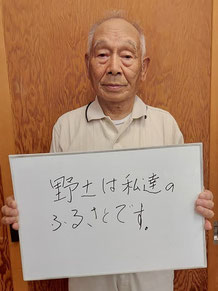 野土は私達の
ふるさとです。